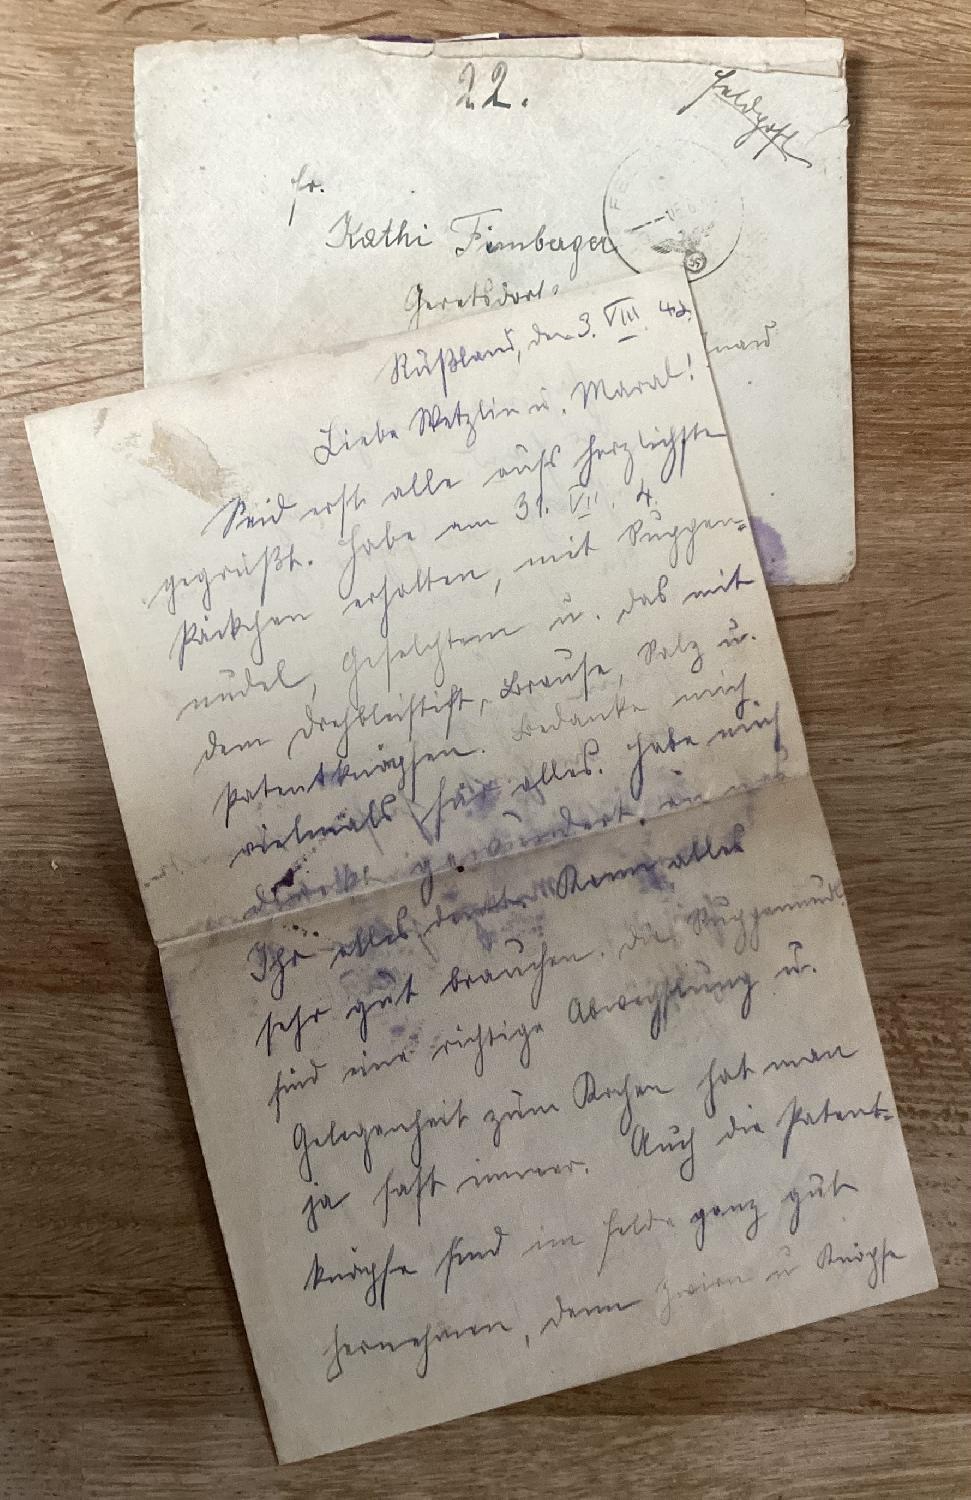 22.
Feldpost
Fr.
Kathi Fimberger
Geretsdorf
Rußland, den 3. VIII. 42.
Liebe u. !
Seid erst alle aufs herzlichste
gegrüßt. Habe am 31. VII. 4.
Päckchen erhalten, mit Suppen-
nudel, Geselchtem u. das mit
dem Drehbleistift, Brause, Salz u.
Patentknöpfen. Bedanke mich
vielmals für alles. Habe mich
gewundert, an was
Ihr alles denkt. Kann alles
sehr gut brauchen. Die Suppennudl
sind eine richtige Abwechslung u.
Gelegenheit zum Kochen hat man
ja fast immer. Auch die Patent-
knöpfe sind im Felde ganz gut
hernehmen, denn Zwirn u Knöpfe